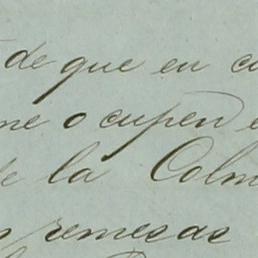 de que en
me ocupen
de la Colm
remesas